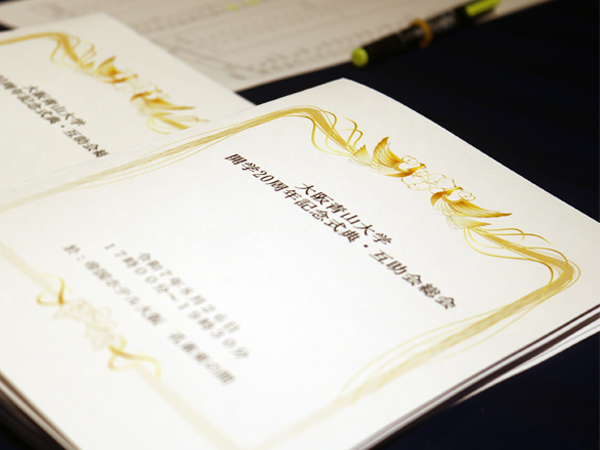 大阪青山大学
開学20周年記念式典・互助会総会
令和7年8月26日
17時00分～19時30分
於：帝国ホテル大阪 孔雀東の間
大阪青山大学
20周年記念式典・互助会総